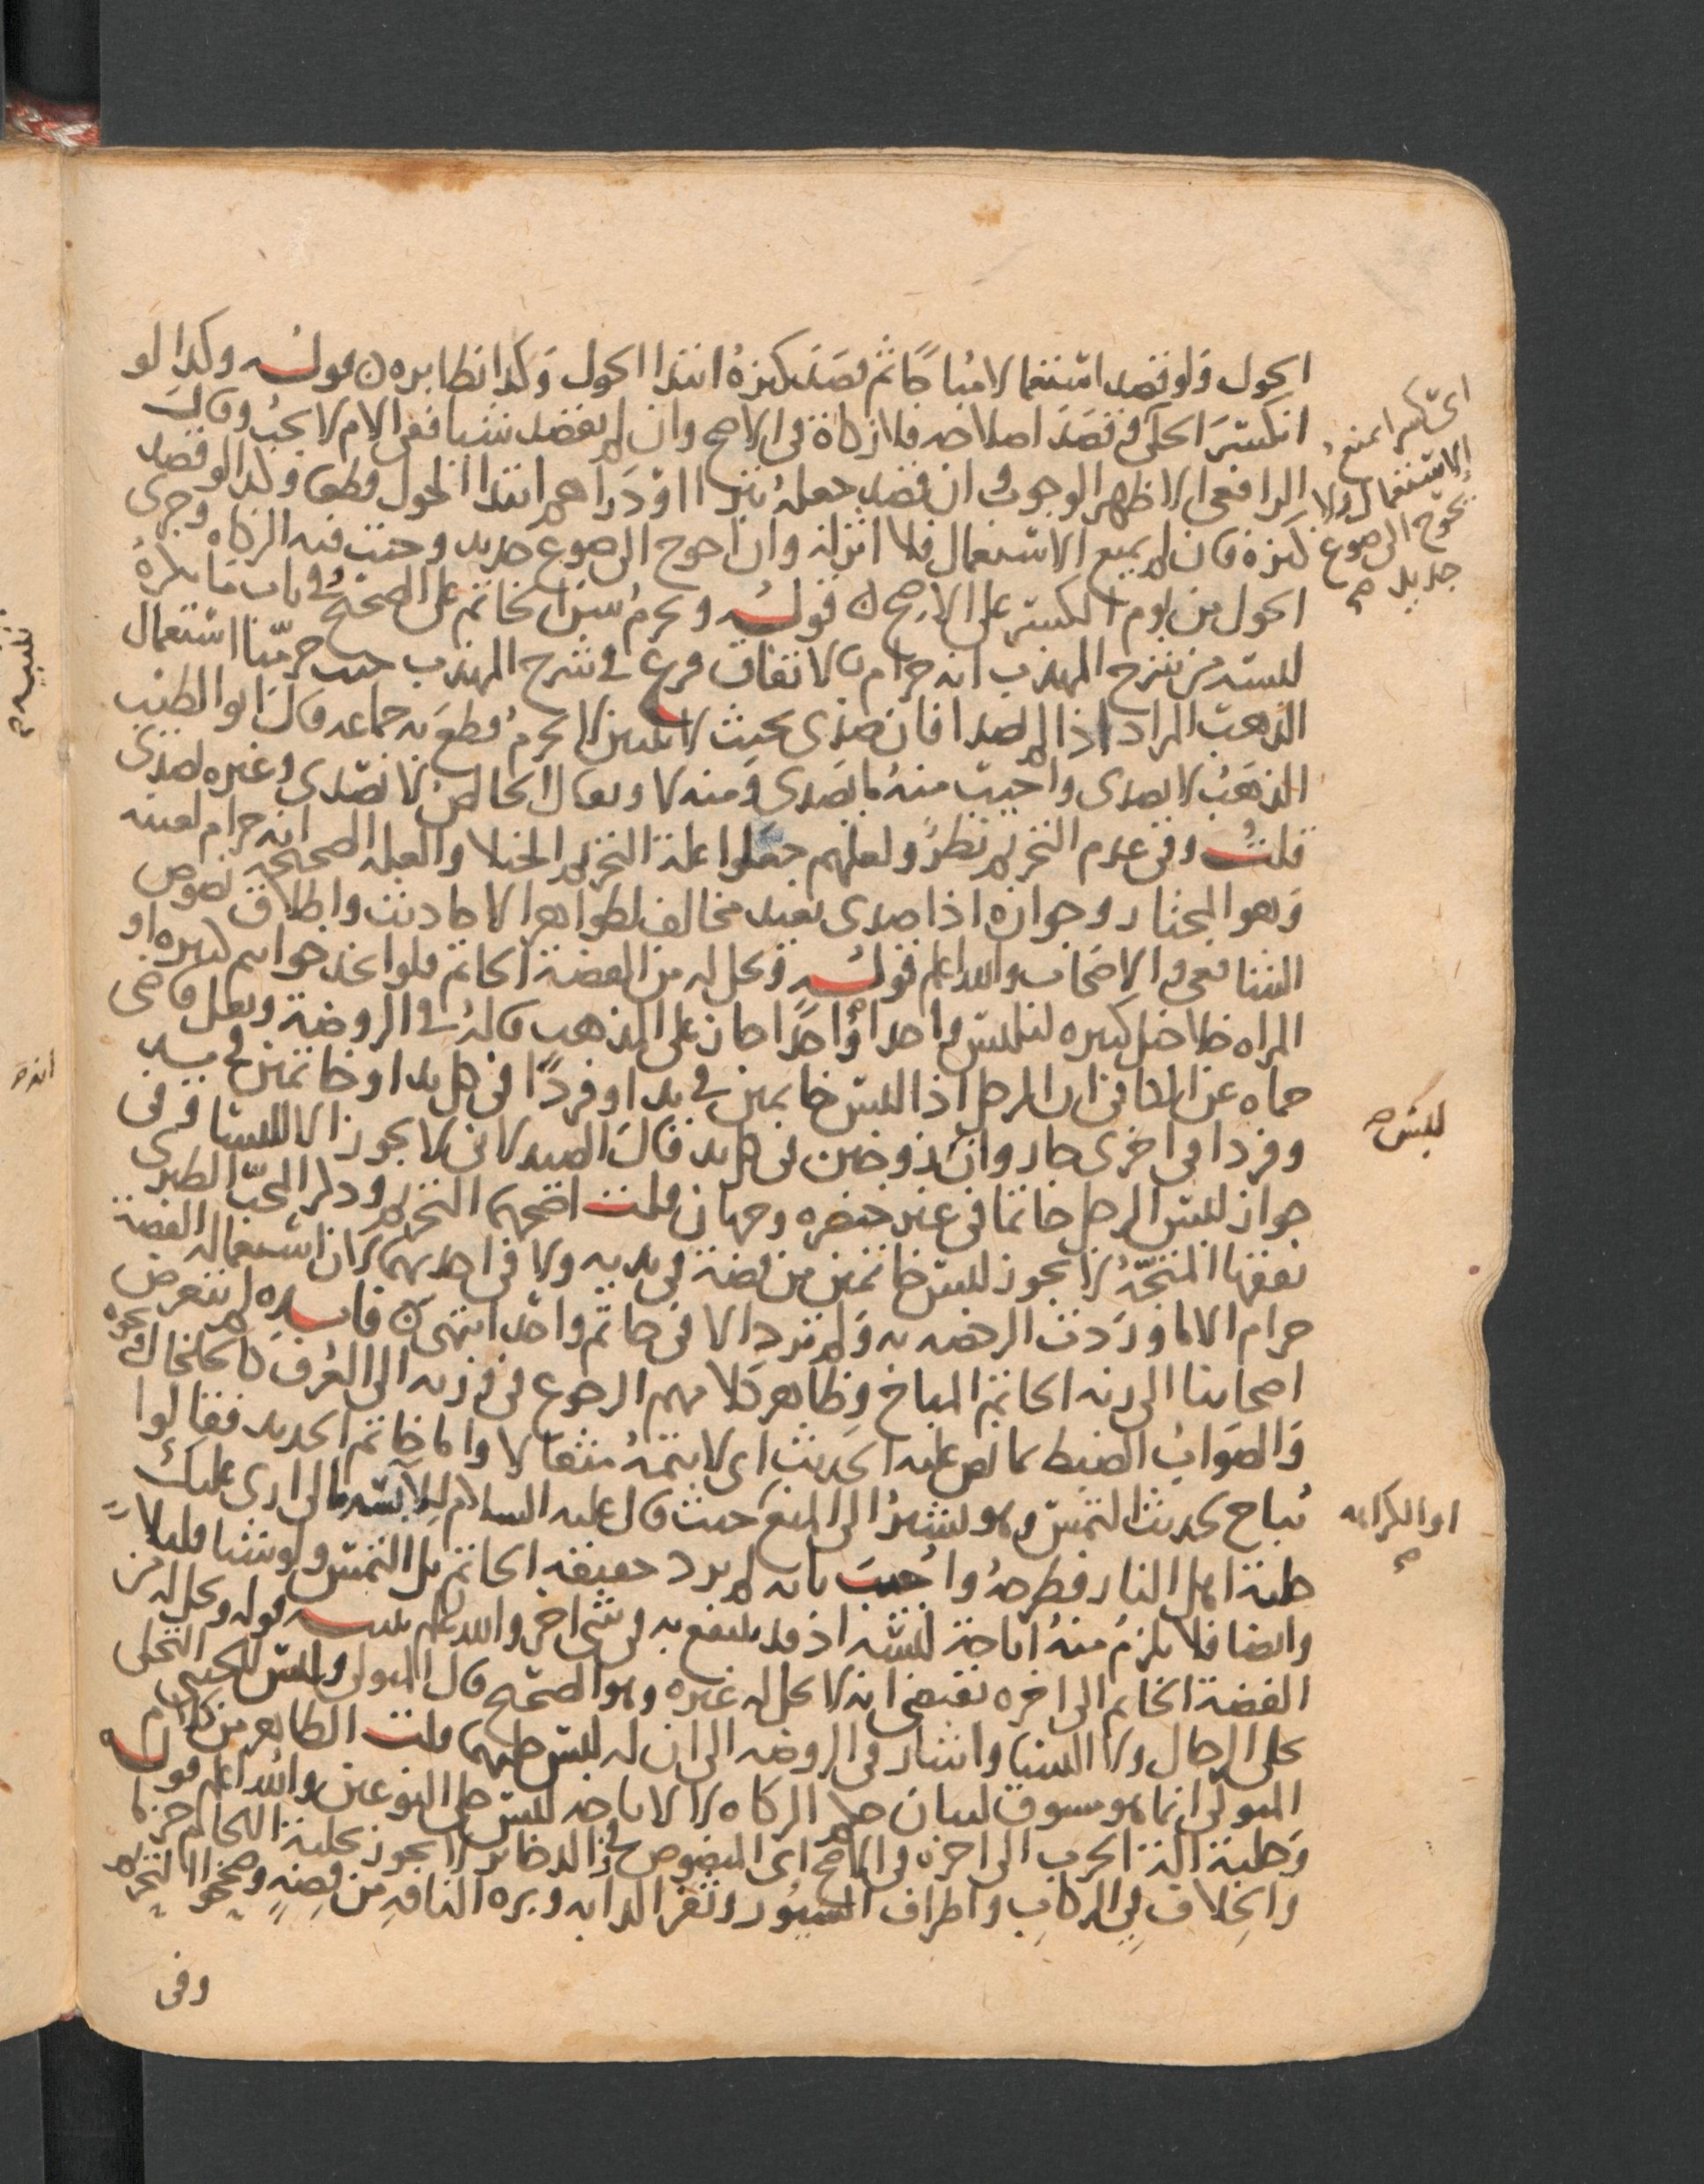 الحول ولو قصد استعمالا مباحا ثم قصد كنزه ابتدا الحول وكذا نظايره قوله وكذا لو
انكسر الحلي وقصد اصلاحه فلا زكاة في الاصح وان لم يقصد شيا ففي الام لا يجب وقال
الرافعي الاظهر الوجوب وان قصد جعله تبرا او دراهم ابتدا الحول قطعا وكذا لو قصد
كنزه فان لم يمنع الاستعمال فلا اثر له وان احوج الى صوغ جديد وجبت فيه الزكاه وجرى
الحول من يوم الكسر على الارجح قوله ويحرم سن الخاتم على الصحيح في باب ما يكره
لبسه من شرح المهذب انه حرام بالاتفاق فرع في شرح المهذب حيث حرمنا استعمال
الذهب المراد اذا لم يصدا فان صدى بحيث لا يبين لا يحرم قطع به جماعه قال ابو الطيب
الذهب لا يصدى واجيب منه ما يصدى ومنه لا ويقال الخالص لا يصدى وغيره يصدى
قلت وفي عدم التحريم نظر ولعلهم جعلوا علة التحريم الخيلا والعله الصحيحة انه حرام لعينه
وهو المختار وجوازه اذا صدى بعيد مخالف لظواهر الاحاديث واطلاق نصوص
الشافعي والاصحاب والله اعلم قوله ويحل له من الفضة الخاتم فلو اتخذ خواتم كثيره او
المراه خلاخل كثيره لتلبس واحدا واحدا جاز على المذهب قاله في الروضة ونقل قاضي
حماه عن الكافي ان الرجل اذا لبس خاتمين في يد او فردا في كل يد او خاتمين في يد
وفردا في اخرى جاز وان زوجين في كل يد قال الصيدلاني لا يجوز الا للنسا وفي
جواز لبس الرجل خاتما في غير خنصره وجهان قلت اصحهما التحريم وذكر المحب الطبري
تفقها المتجه لا يجوز للبس خاتمين من فضة في يديه ولا في احديهما لان استعمال الفضة
حرام الا ما وردت الرخصه به ولم ترد الا في خاتم واحد انتهى فايده لم يتعرض
اصحابنا الى زنه الخاتم المباح وظاهر كلامهم الرجوع في وزنه الى العرف كالخلخال ونحوه
والصواب الضبط بما نص عليه الحديث اي لا يتمه مثقالا واما خاتم الحديد فقالوا
يباح لحديث التمس وهو يشير الى المنع حيث قال عليه السلام للابسه مالي ارى عليك
حلية اهل النار فطرحه واجيب بانه لم يرد حقيقه الخاتم بل التمس ولو شيا قليلا
وايضا فلا يلزم منه اباحة لبسه اذ قد ينتفع به في شي اخر والله اعلم تنبيه قوله ويحل له من
الفضة الخاتم الى اخره يقتضي انه لا يحل له غيره وهو الصحيح قال المتولي وليس للخنثى التحلي
بحلى الرجال ولا النسا واشار في الروضه الى ان له لبس حليهما قلت الظاهر من كلام
المتولي انما هو مسوق لبيان حكم الزكاه لا لاباحه لبس حلى النوعين والله اعلم قوله
وحلية الة الحرب الى اخره في الاصح اي المنصوص في الذخاير لا يجوز تحلية اللجام جزما
والخلاف في الركاب واطراف السيور وثفر الدابه وبره الناقه من فضه وصححوا التحريم
وفي
اي كسرا يمنع
الاستعمال ولا
يحوج الى صوغ
جديد صح
للبس صح
او الكراهه
صح